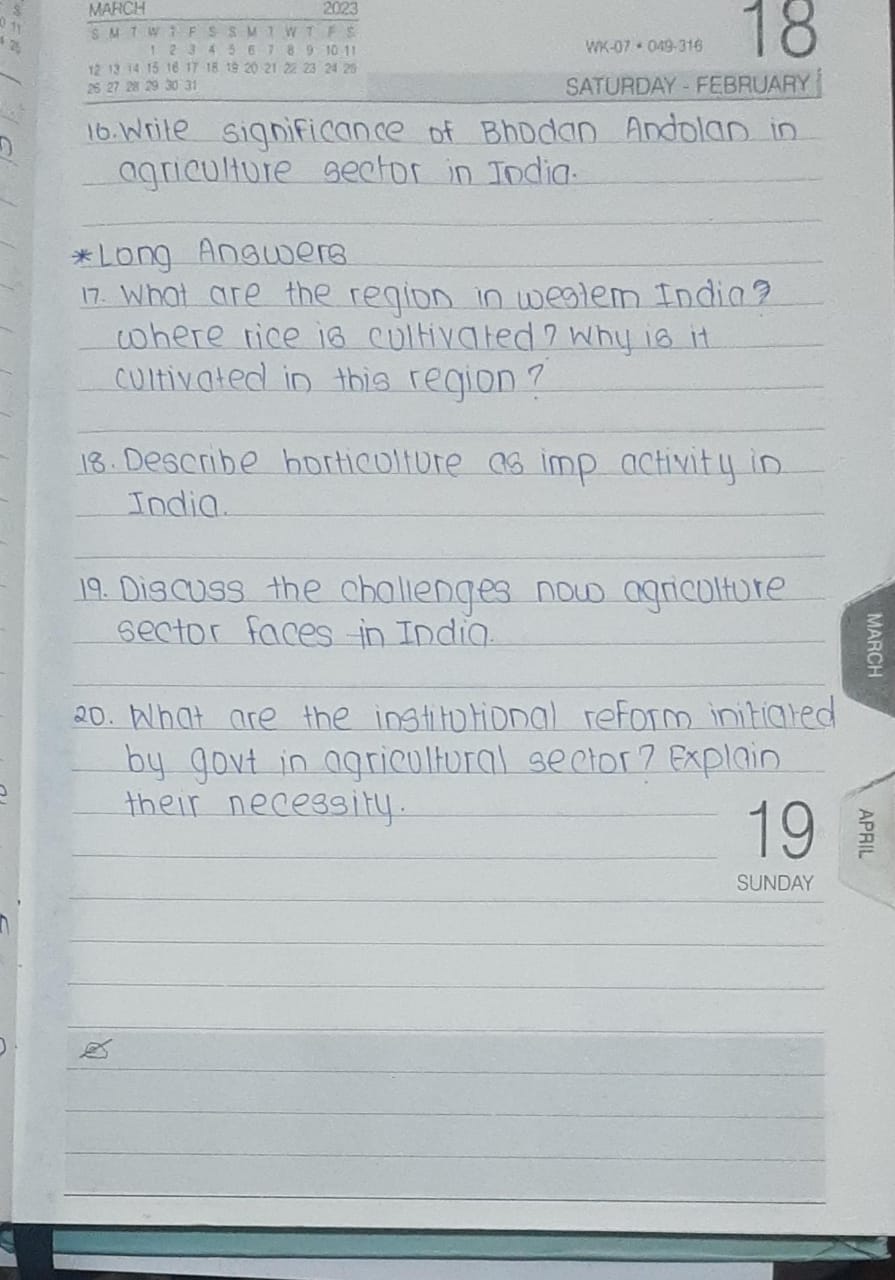 MARCH 2023
S M T W T F S S M T W T F S
1 2 3 4 5 6 7 8 9 10 11
12 13 14 15 16 17 18 19 20 21 22 23 24 25
26 27 28 29 30 31
18
WK-07 • 049-316
SATURDAY - FEBRUARY
16. Write significance of Bhodan Andolan in
agriculture sector in India.
*Long Answers
17. What are the region in western India?
where rice is cultivated? Why is it
cultivated in this region?
18. Describe horticulture as imp activity in
India.
19. Discuss the challenges now agriculture
sector faces in India.
20. What are the institutional reform initiated
by govt in agricultural sector? Explain
their necessity.
19
SUNDAY
MARCH
APRIL